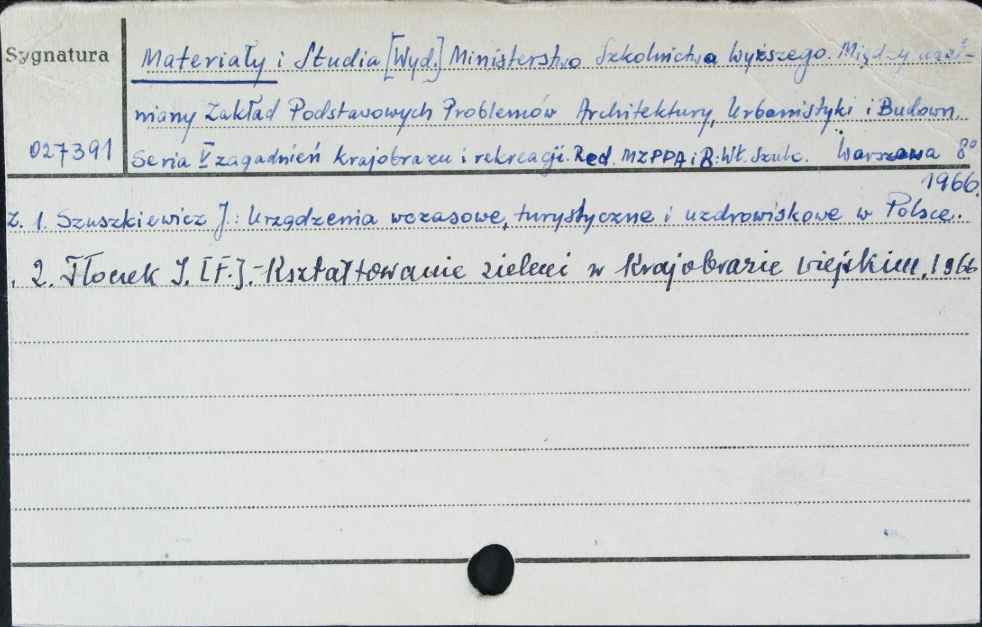 Sygnatura
Materiały i Studia [Wyd.] Ministerstwo Szkolnictwa Wyższego. Międzyuczel-
niany Zakład Podstawowych Problemów Architektury, Urbanistyki i Budown.
027391 Seria V zagadnień krajobrazu i rekreacji. Red. MZPPA i B: Wł. Szulc. Warszawa 8°
1966.
z. 1. Szuszkiewicz J.: Urządzenia wczasowe, turystyczne i uzdrowiskowe w Polsce.
2. Tłoczek I. [F.].- Kształtowanie zieleni w krajobrazie wiejskim, 1966